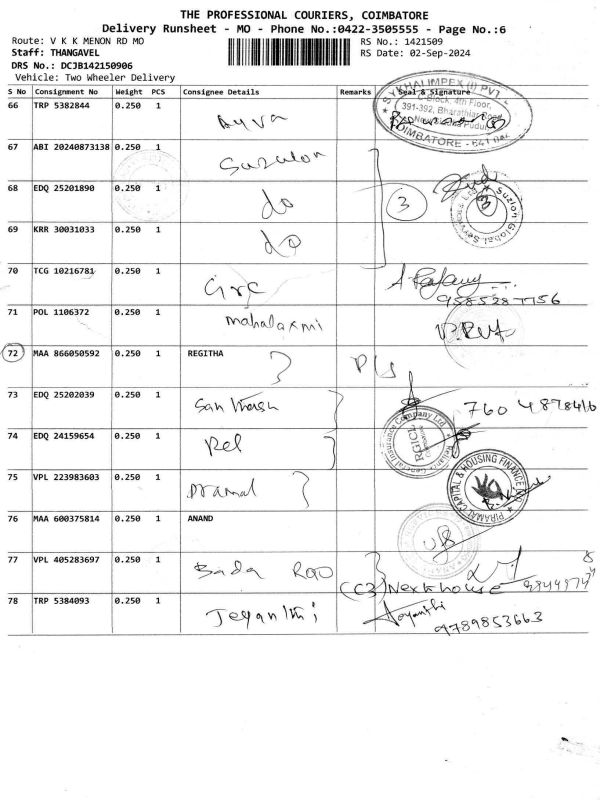 THE PROFESSIONAL COURIERS, COIMBATORE
Delivery Runsheet - MO - Phone No.:0422-3505555 - Page No.:6
Route: V K K MENON RD MO
RS No.: 1421509
Staff: THANGAVEL
RS Date: 02-Sep-2024
DRS No.: DCJB142150906
Vehicle: Two Wheeler Delivery
S No Consignment No Weight PCS Consignee Details Remarks Seal & Signature
66 TRP 5382844 0.250 1 Ayva
SYKHALIMPEX (I) PVT L
C-Block, 4th Floor,
391-392, Bharathiar Road
COIMBATORE - 641
67 ABI 20240873138 0.250 1 Suzulon
68 EDQ 25201890 0.250 1 do 3
Suzlon Global Services
69 KRR 30031033 0.250 1 do
70 TCG 10216781 0.250 1
9585287756
71 POL 1106372 0.250 1 mahalaxmi
72 MAA 866050592 0.250 1 REGITHA
73 EDQ 25202039 0.250 1 Santhosh
General Insurance Company Ltd
RGICL
74 EDQ 24159654 0.250 1 Rel
75 VPL 223983603 0.250 1 piramal
PIRAMAL CAPITAL & HOUSING FINANCE
76 MAA 600375814 0.250 1 ANAND
77 VPL 405283697 0.250 1 Bada Rao
Nexthouse
78 TRP 5384093 0.250 1 Jeyanthi
Jeyanthi
9789853663